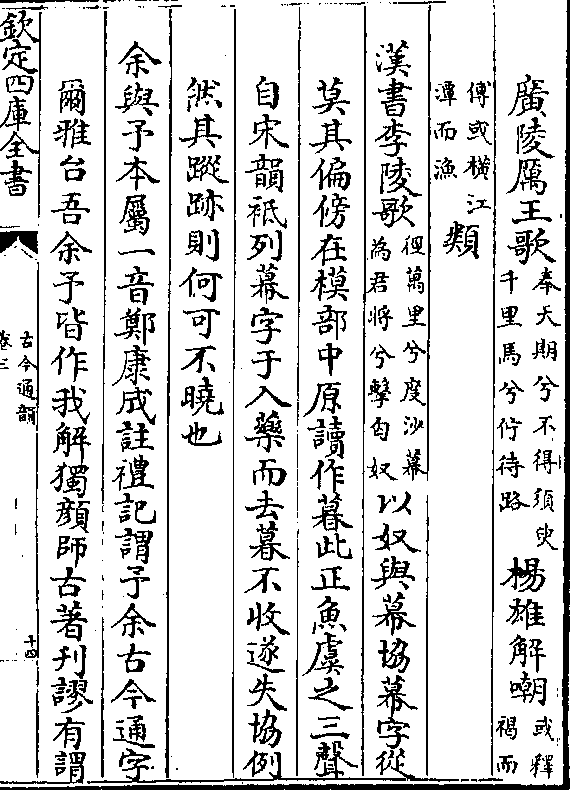 廣陵厲王歌奉天期兮不得須臾千里馬兮佇待路楊雄解嘲或釋褐而
傅或橫江潭而漁類
漢書李陵歌徑萬里兮度沙幕為君將兮擊匈奴以奴與幕協幕字從
莫其偏傍在模部中原讀作暮此正魚虞之三聲
自宋韻祗列幕字于入藥而去暮不收遂失協例
然其蹤跡則何可不曉也
余與予本屬一音鄭康成註禮記謂予余古今通字
爾雅台吾余予皆作我解獨顔師古著刊謬有謂
欽定四庫全書
古今通韻
卷三
十四